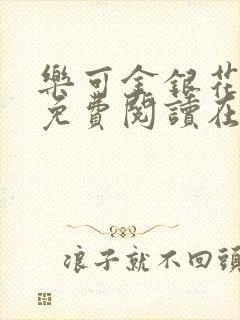 樂可金銀花
免費閱讀在
浪子就不回頭